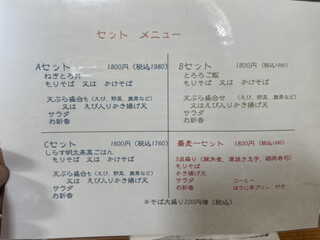 セット メニュー
Aセット 1800円 (税込1980)
ねぎとろ丼
もりそば 又は かけそば
天ぷら盛合せ (えび、野菜、舞茸など)
又は えび入りかき揚げ天
サラダ
お新香
Bセット 1800円 (税込1980)
とろろご飯
もりそば 又は かけそば
天ぷら盛合せ (えび、野菜、舞茸など)
又はえび入りかき揚げ天
サラダ
お新香
Cセット 1600円 (税込1760)
しらす明太高菜ごはん
もりそば 又は かけそば
天ぷら盛合せ (えび、野菜、舞茸など)
又は えび入りかき揚げ天
サラダ
お新香
蕎麦一セット 1800円 (税込1980)
3点盛り
もりそば
かき揚げ天
サラダ コーヒー
お新香 ほうじ茶プリン 付き
※そば大盛り220円増 (税込)